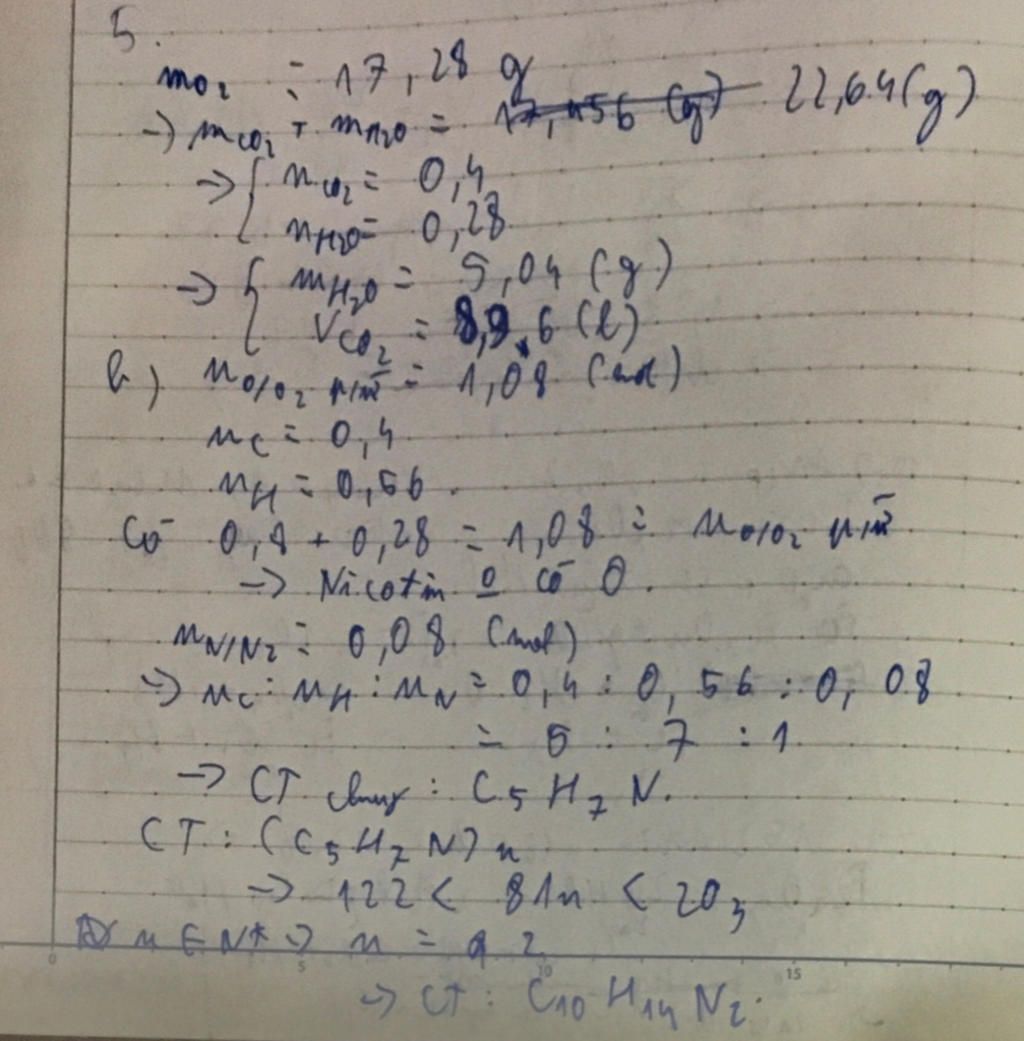 5.
mO2 = 17,28 g
-> mCO2 + mH2O = 17,456 (g) 22,64 (g)
=> { nCO2 = 0,4
nH2O = 0,28
=> { mH2O = 5,04 (g)
VCO2 = 8,96 (l)
b) nO/O2 p/ư = 1,08 (mol)
nC = 0,4
nH = 0,56.
Có 0,8 + 0,28 = 1,08 = nO/O2 p/ư
-> Nicotin 0 có O.
nN/N2 = 0,08 (mol)
=> nC : nH : nN = 0,4 : 0,56 : 0,08
= 5 : 7 : 1
-> CT chung : C5H7N.
CT : (C5H7N)n
-> 122 < 81n < 203
n ∈ N* => n = 2
0 5 10 15
-> CT : C10H14N2.